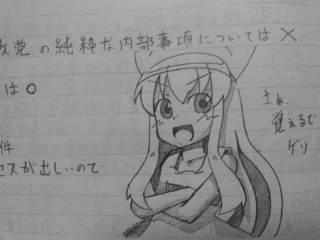 政党の純粋な内部事項については×
は○
件
セスが出しいので
覚えるで
ゲリ